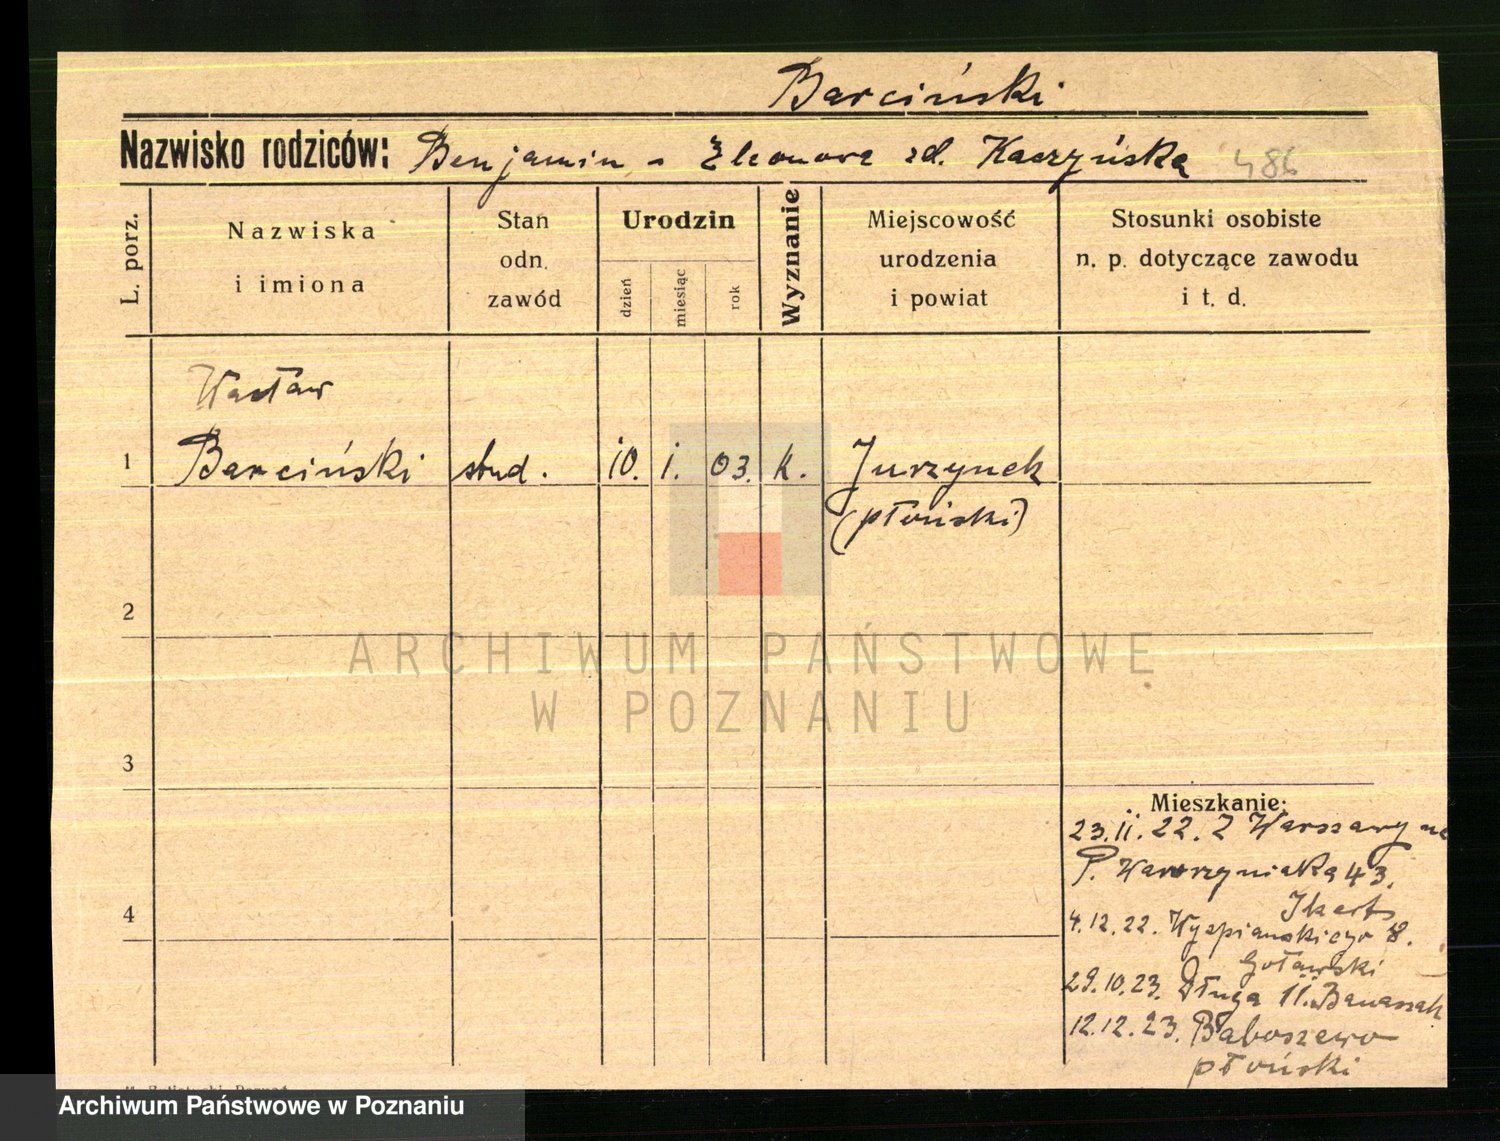 Barciński
Nazwisko rodziców: Benjamin - Eleonora zd. Kaczyńska 486
L. porz.
Nazwiska
i imiona
Stan
odn.
zawód
Urodzin
dzień
miesiąc
rok
Wyznanie
Miejscowość
urodzenia
i powiat
Stosunki osobiste
n. p. dotyczące zawodu
i t. d.
Wacław
1 Barciński stud. 10. 1. 03. k. Jurzynek
(płoński)
2
3
4
Mieszkanie:
23.II.22. Z Warszawy na
P. Wawrzyniaka 43.
4.12.22. Wyspianskiego 8.
Gotawski
29.10.23. Długa 11. Banaszak
12.12.23. Baboszewo
płoński
ARCHIWUM PAŃSTWOWE
W POZNANIU
Archiwum Państwowe w Poznaniu